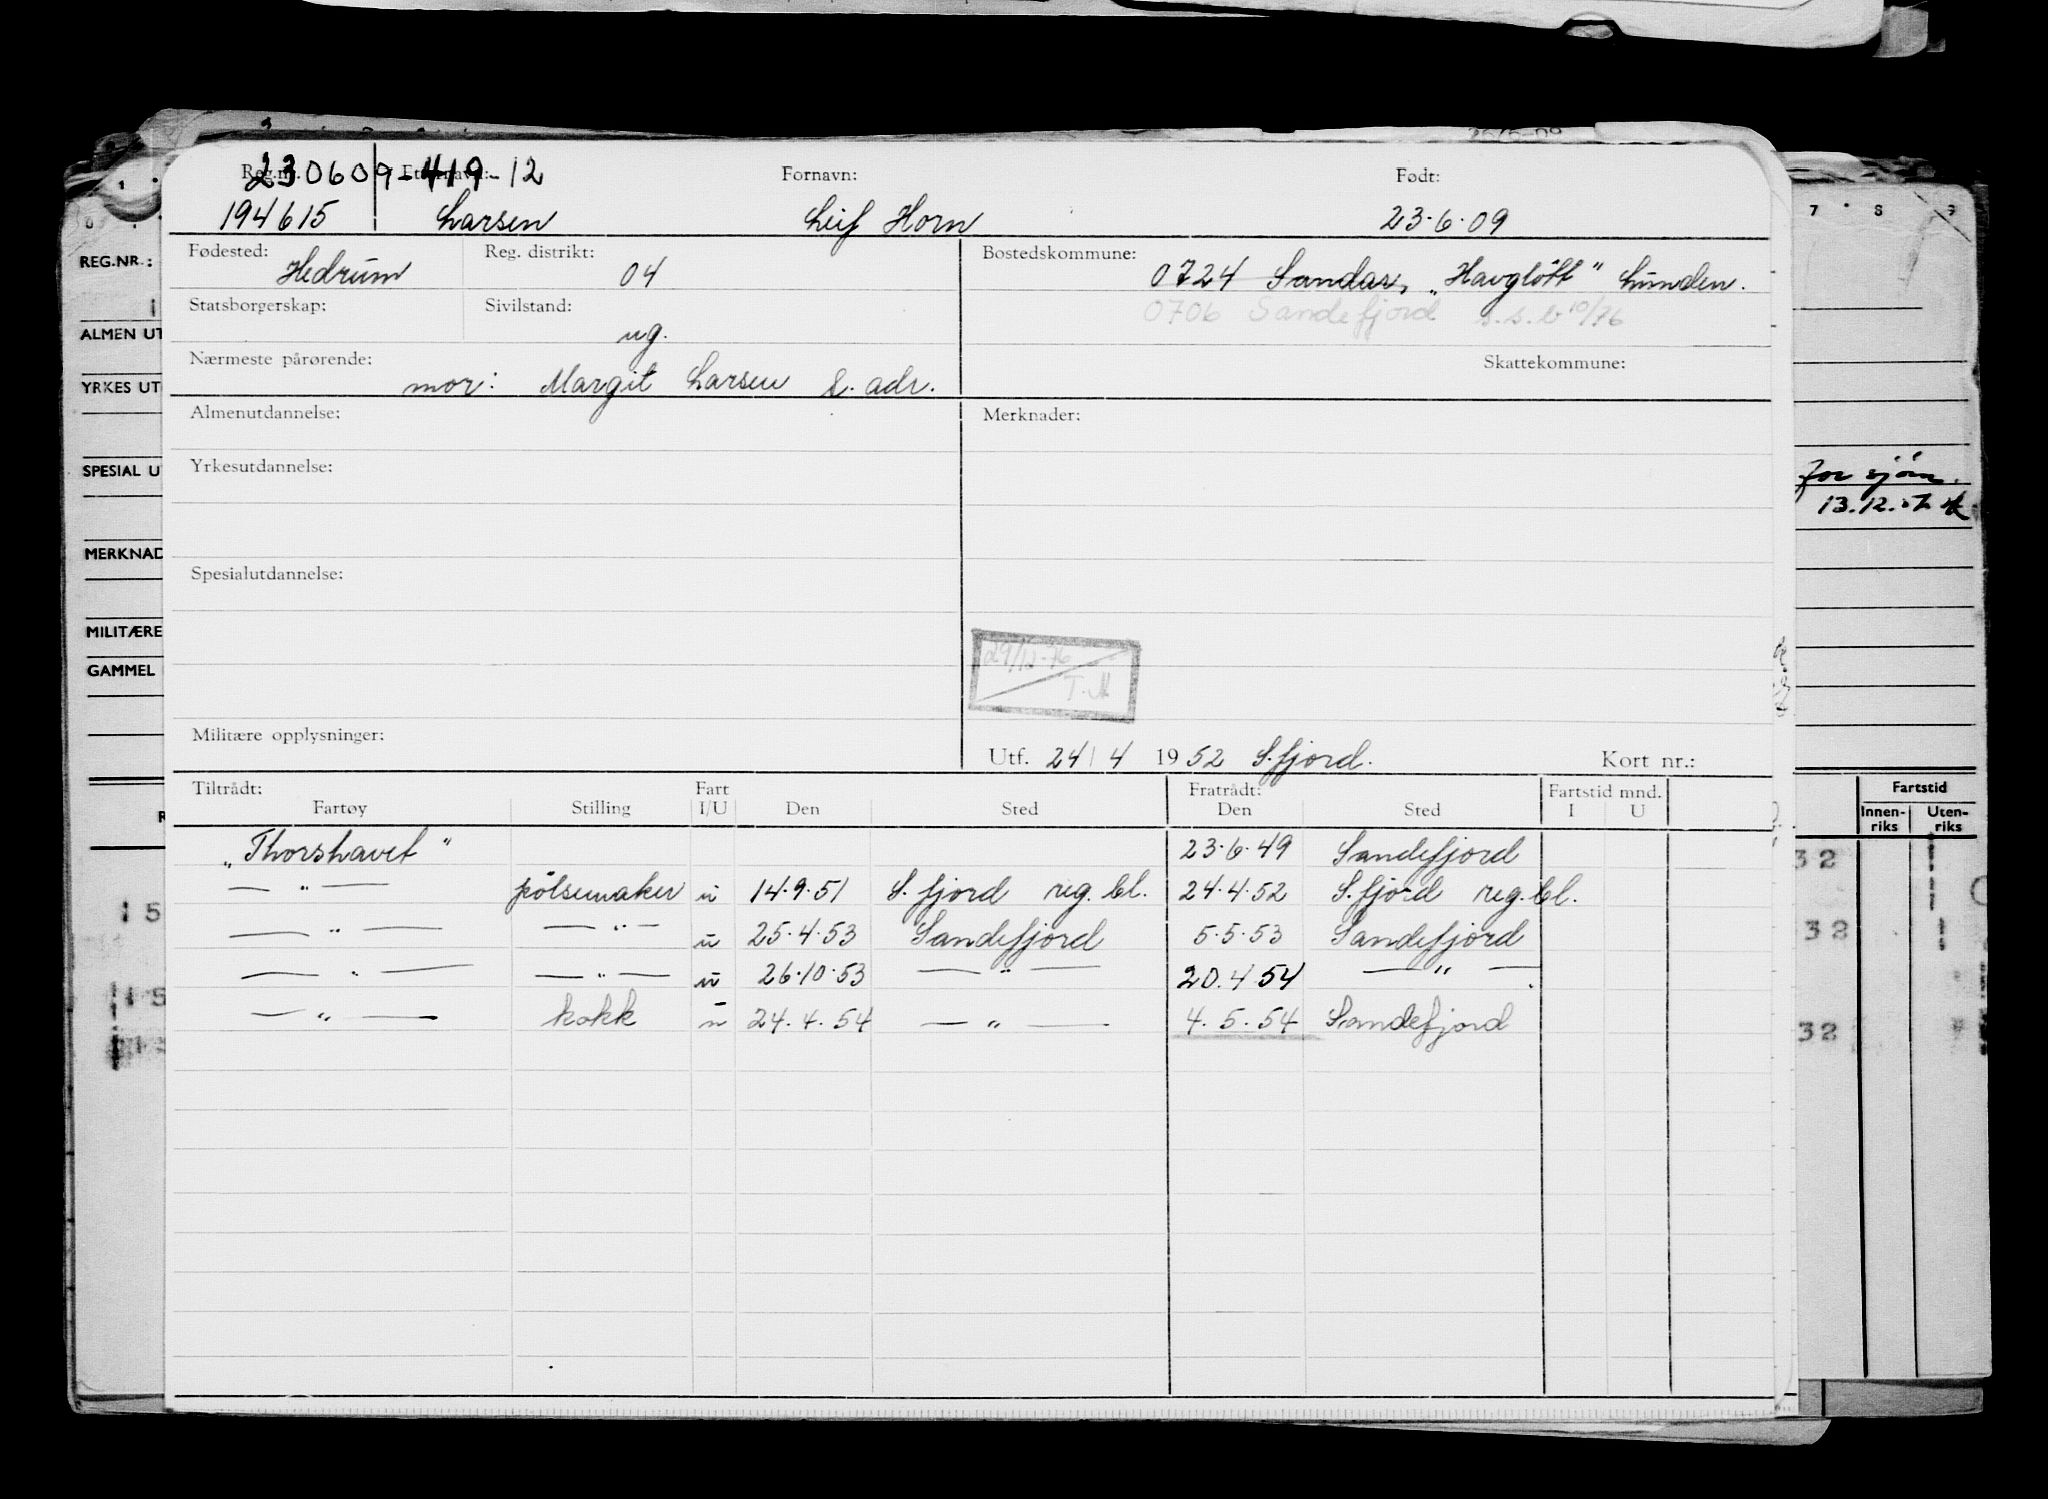 230609-419-12
Reg.nr. Etternavn: Fornavn: Født:
194615 Larsen Leif Horn 23.6.09
Fødested: Reg. distrikt: Bostedskommune:
Hedrum 04 0724 Sandar, „Havglött" Lunden.
Statsborgerskap: Sivilstand: 0706 Sandefjord s.s.b 10/76
ug.
Nærmeste pårørende: Skattekommune:
mor: Margit Larsen s. adr.
Almenutdannelse: Merknader:
Yrkesutdannelse:
Spesialutdannelse:
29/12-76
T.M
Militære opplysninger:
Utf. 24/4 1952 S.fjord. Kort nr.:
Tiltrådt: Fart Fratrådt: Fartstid mnd.
Fartøy Stilling I/U Den Sted Den Sted I U
„Thorshavet" 23.6.49 Sandefjord
— " — pölsemaker u 14.9.51 S.fjord reg.bl. 24.4.52 S.fjord reg.bl.
— " — — " — u 25.4.53 Sandefjord 5.5.53 Sandefjord
— " — — " — u 26.10.53 — " — 20.4.54 — " —
— " — kokk u 24.4.54 — " — 4.5.54 Sandefjord
REG.NR.:
ALMEN UT
YRKES UT
SPESIAL U
MERKNAD
MILITÆRE
GAMMEL
7 8 9
for sjøm.
13.12.57
Fartstid
Innen-riks Uten-riks
32
32
32